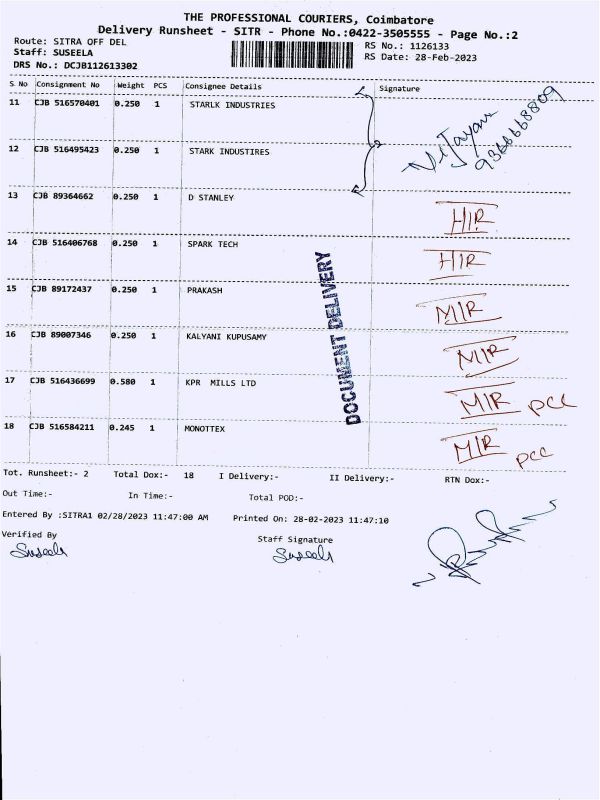 THE PROFESSIONAL COURIERS, Coimbatore
Delivery Runsheet - SITR - Phone No.:0422-3505555 - Page No.:2
Route: SITRA OFF DEL
RS No.: 1126133
Staff: SUSEELA
RS Date: 28-Feb-2023
DRS No.: DCJB112613302
S No Consignment No Weight PCS Consignee Details Signature
11 CJB 516570401 0.250 1 STARLK INDUSTRIES
Vijayan
9366668809
12 CJB 516495423 0.250 1 STARK INDUSTIRES
13 CJB 89364662 0.250 1 D STANLEY
HIR
14 CJB 516406768 0.250 1 SPARK TECH
HIR
15 CJB 89172437 0.250 1 PRAKASH
MIR
16 CJB 89007346 0.250 1 KALYANI KUPUSAMY
MIR
17 CJB 516436699 0.580 1 KPR MILLS LTD
MIR PCC
18 CJB 516584211 0.245 1 MONOTTEX
MIR PCC
DOCUMENT DELIVERY
Tot. Runsheet:- 2 Total Dox:- 18 I Delivery:- II Delivery:- RTN Dox:-
Out Time:- In Time:- Total POD:-
Entered By :SITRA1 02/28/2023 11:47:00 AM Printed On: 28-02-2023 11:47:10
Verified By Staff Signature
Suseela Suseela